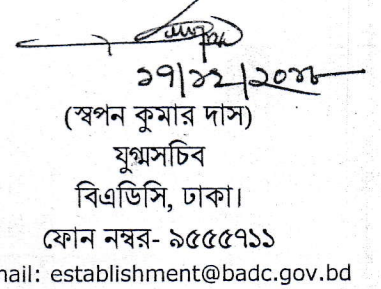 ১৭/১২/২০১৮
(স্বপন কুমার দাস)
যুগ্মসচিব
বিএডিসি, ঢাকা।
ফোন নম্বর- ৯৫৫৫৭১১
mail: establishment@badc.gov.bd